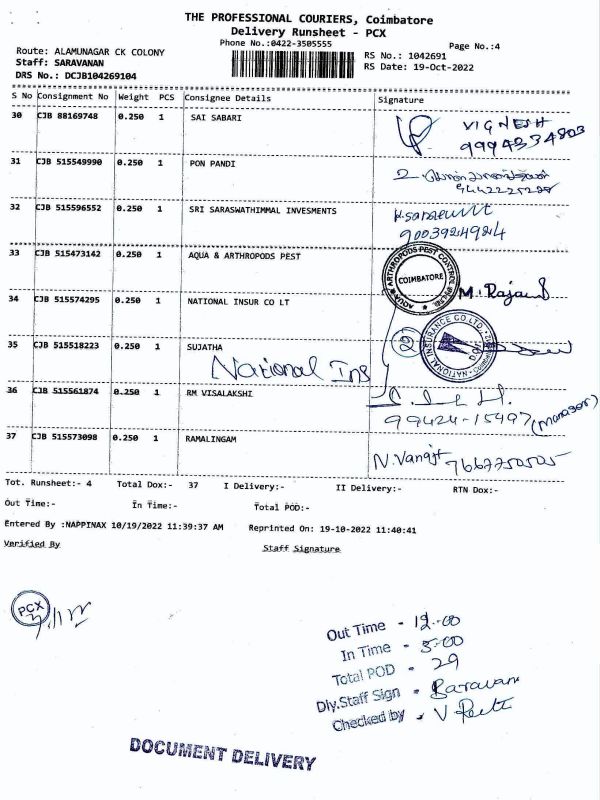 THE PROFESSIONAL COURIERS, Coimbatore
Delivery Runsheet - PCX
Phone No.:0422-3505555
Page No.:4
Route: ALAMUNAGAR CK COLONY
Staff: SARAVANAN
DRS No.: DCJB104269104
RS No.: 1042691
RS Date: 19-Oct-2022
S No Consignment No Weight PCS Consignee Details Signature
30 CJB 88169748 0.250 1 SAI SABARI
VIGNESH
9994334803
31 CJB 515549990 0.250 1 PON PANDI
32 CJB 515596552 0.250 1 SRI SARASWATHIMMAL INVESMENTS
9003924924
33 CJB 515473142 0.250 1 AQUA & ARTHROPODS PEST
AQUA & ARTHROPODS PEST CONTROL
COIMBATORE
34 CJB 515574295 0.250 1 NATIONAL INSUR CO LT
NATIONAL INSURANCE CO LTD.
35 CJB 515518223 0.250 1 SUJATHA
2
National Ins
36 CJB 515561874 0.250 1 RM VISALAKSHI
99424-15497 (Manager)
37 CJB 515573098 0.250 1 RAMALINGAM
Tot. Runsheet:- 4 Total Dox:- 37 I Delivery:- II Delivery:- RTN Dox:-
Out Time:- In Time:- Total POD:-
Entered By :NAPPINAX 10/19/2022 11:39:37 AM Reprinted On: 19-10-2022 11:40:41
Verified By Staff Signature
PCX
Out Time - 12.00
In Time - 5.00
Total POD - 29
Dly.Staff Sign -
Checked by -
DOCUMENT DELIVERY